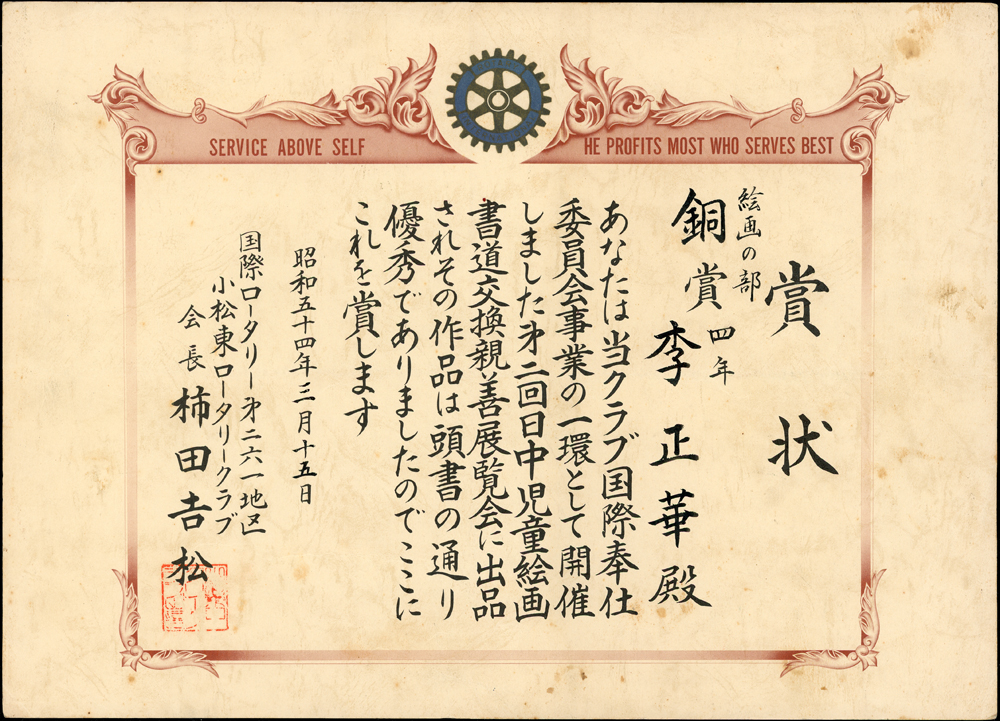 SERVICE ABOVE SELF
HE PROFITS MOST WHO SERVES BEST
賞状
絵画の部
銅賞
四年
李正華殿
あなたは当クラブ国際奉仕
委員会事業の一環として開催
しました㐧二回日中児童絵画
書道交換親善展覧会に出品
されその作品は頭書の通り
優秀でありましたのでここに
これを賞します
昭和五十四年三月十五日
国際ロータリー㐧二六一地区
小松東ロータリークラブ
会長 柿田𠮷松